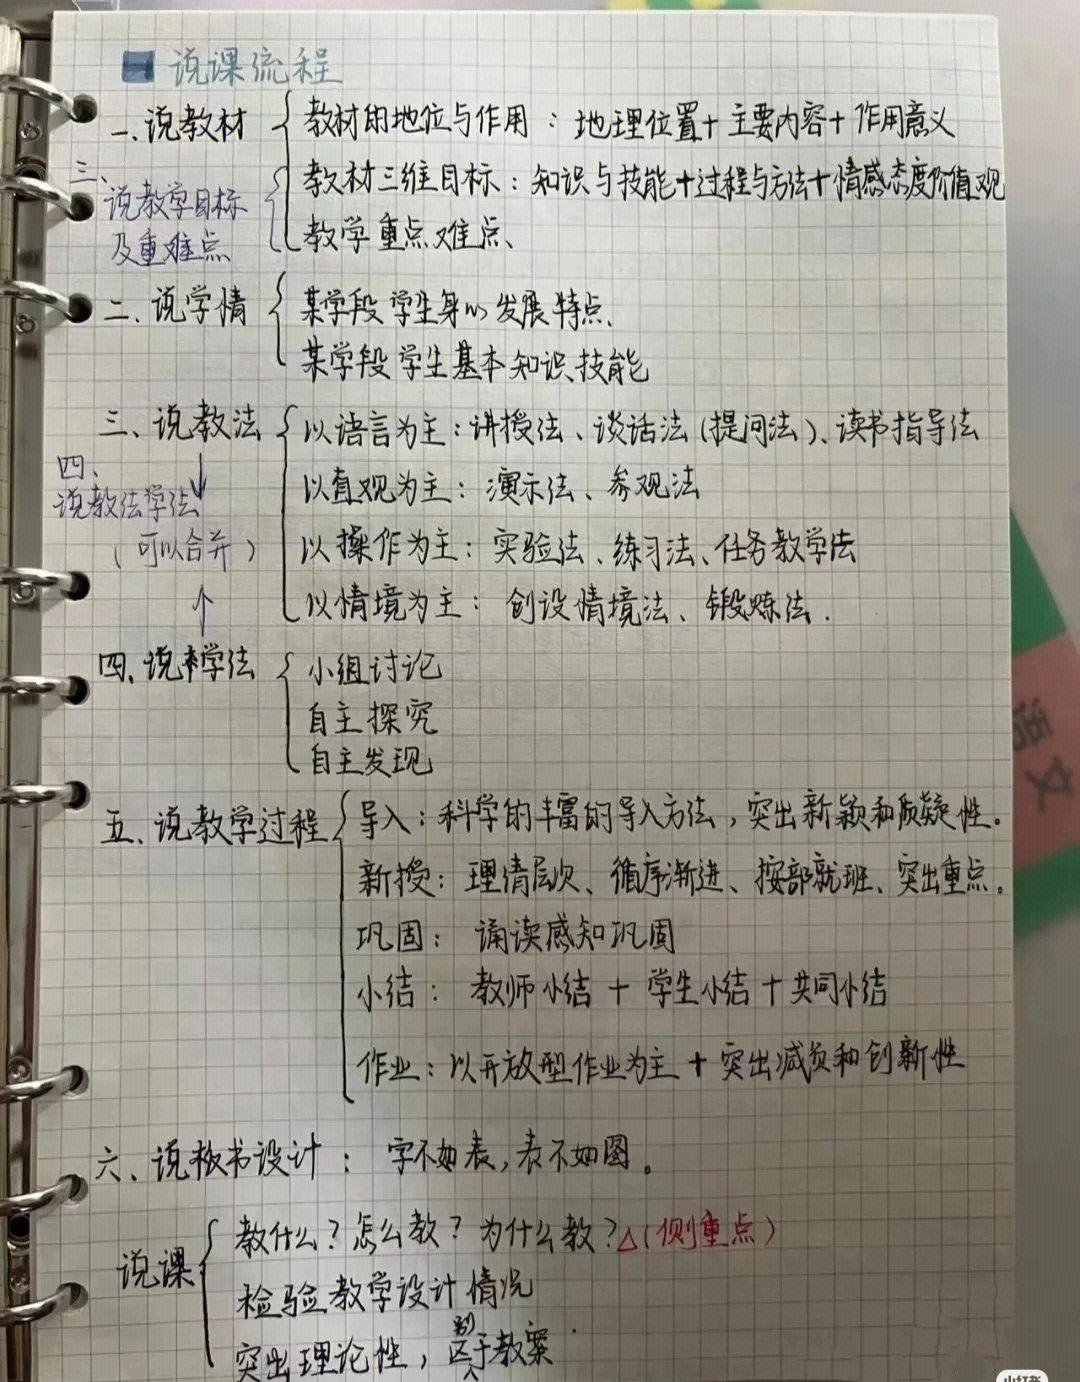 说课流程
一、说教材
教材的地位与作用：地理位置+主要内容+作用意义
三、
说教学目标
及重难点
教材三维目标：知识与技能+过程与方法+情感态度价值观
教学重点难点、
二、说学情
某学段学生身心发展特点、
某学段学生基本知识、技能
三、说教法
以语言为主：讲授法、谈话法(提问法)、读书指导法
四、
说教法学法
(可以合并)
以直观为主：演示法、参观法
以操作为主：实验法、练习法、任务教学法
以情境为主：创设情境法、锻炼法.
四、说学法
小组讨论
自主探究
自主发现
五、说教学过程
导入：科学的丰富的导入方法，突出新颖和质疑性。
新授：理清层次、循序渐进、按部就班、突出重点。
巩固：诵读感知巩固
小结：教师小结+学生小结+共同小结
作业：以开放型作业为主+突出减负和创新性
六、说板书设计：字不如表，表不如图。
说课
教什么？怎么教？为什么教？△(侧重点)
检验教学设计情况
突出理论性，区别于教案
语文
小红书